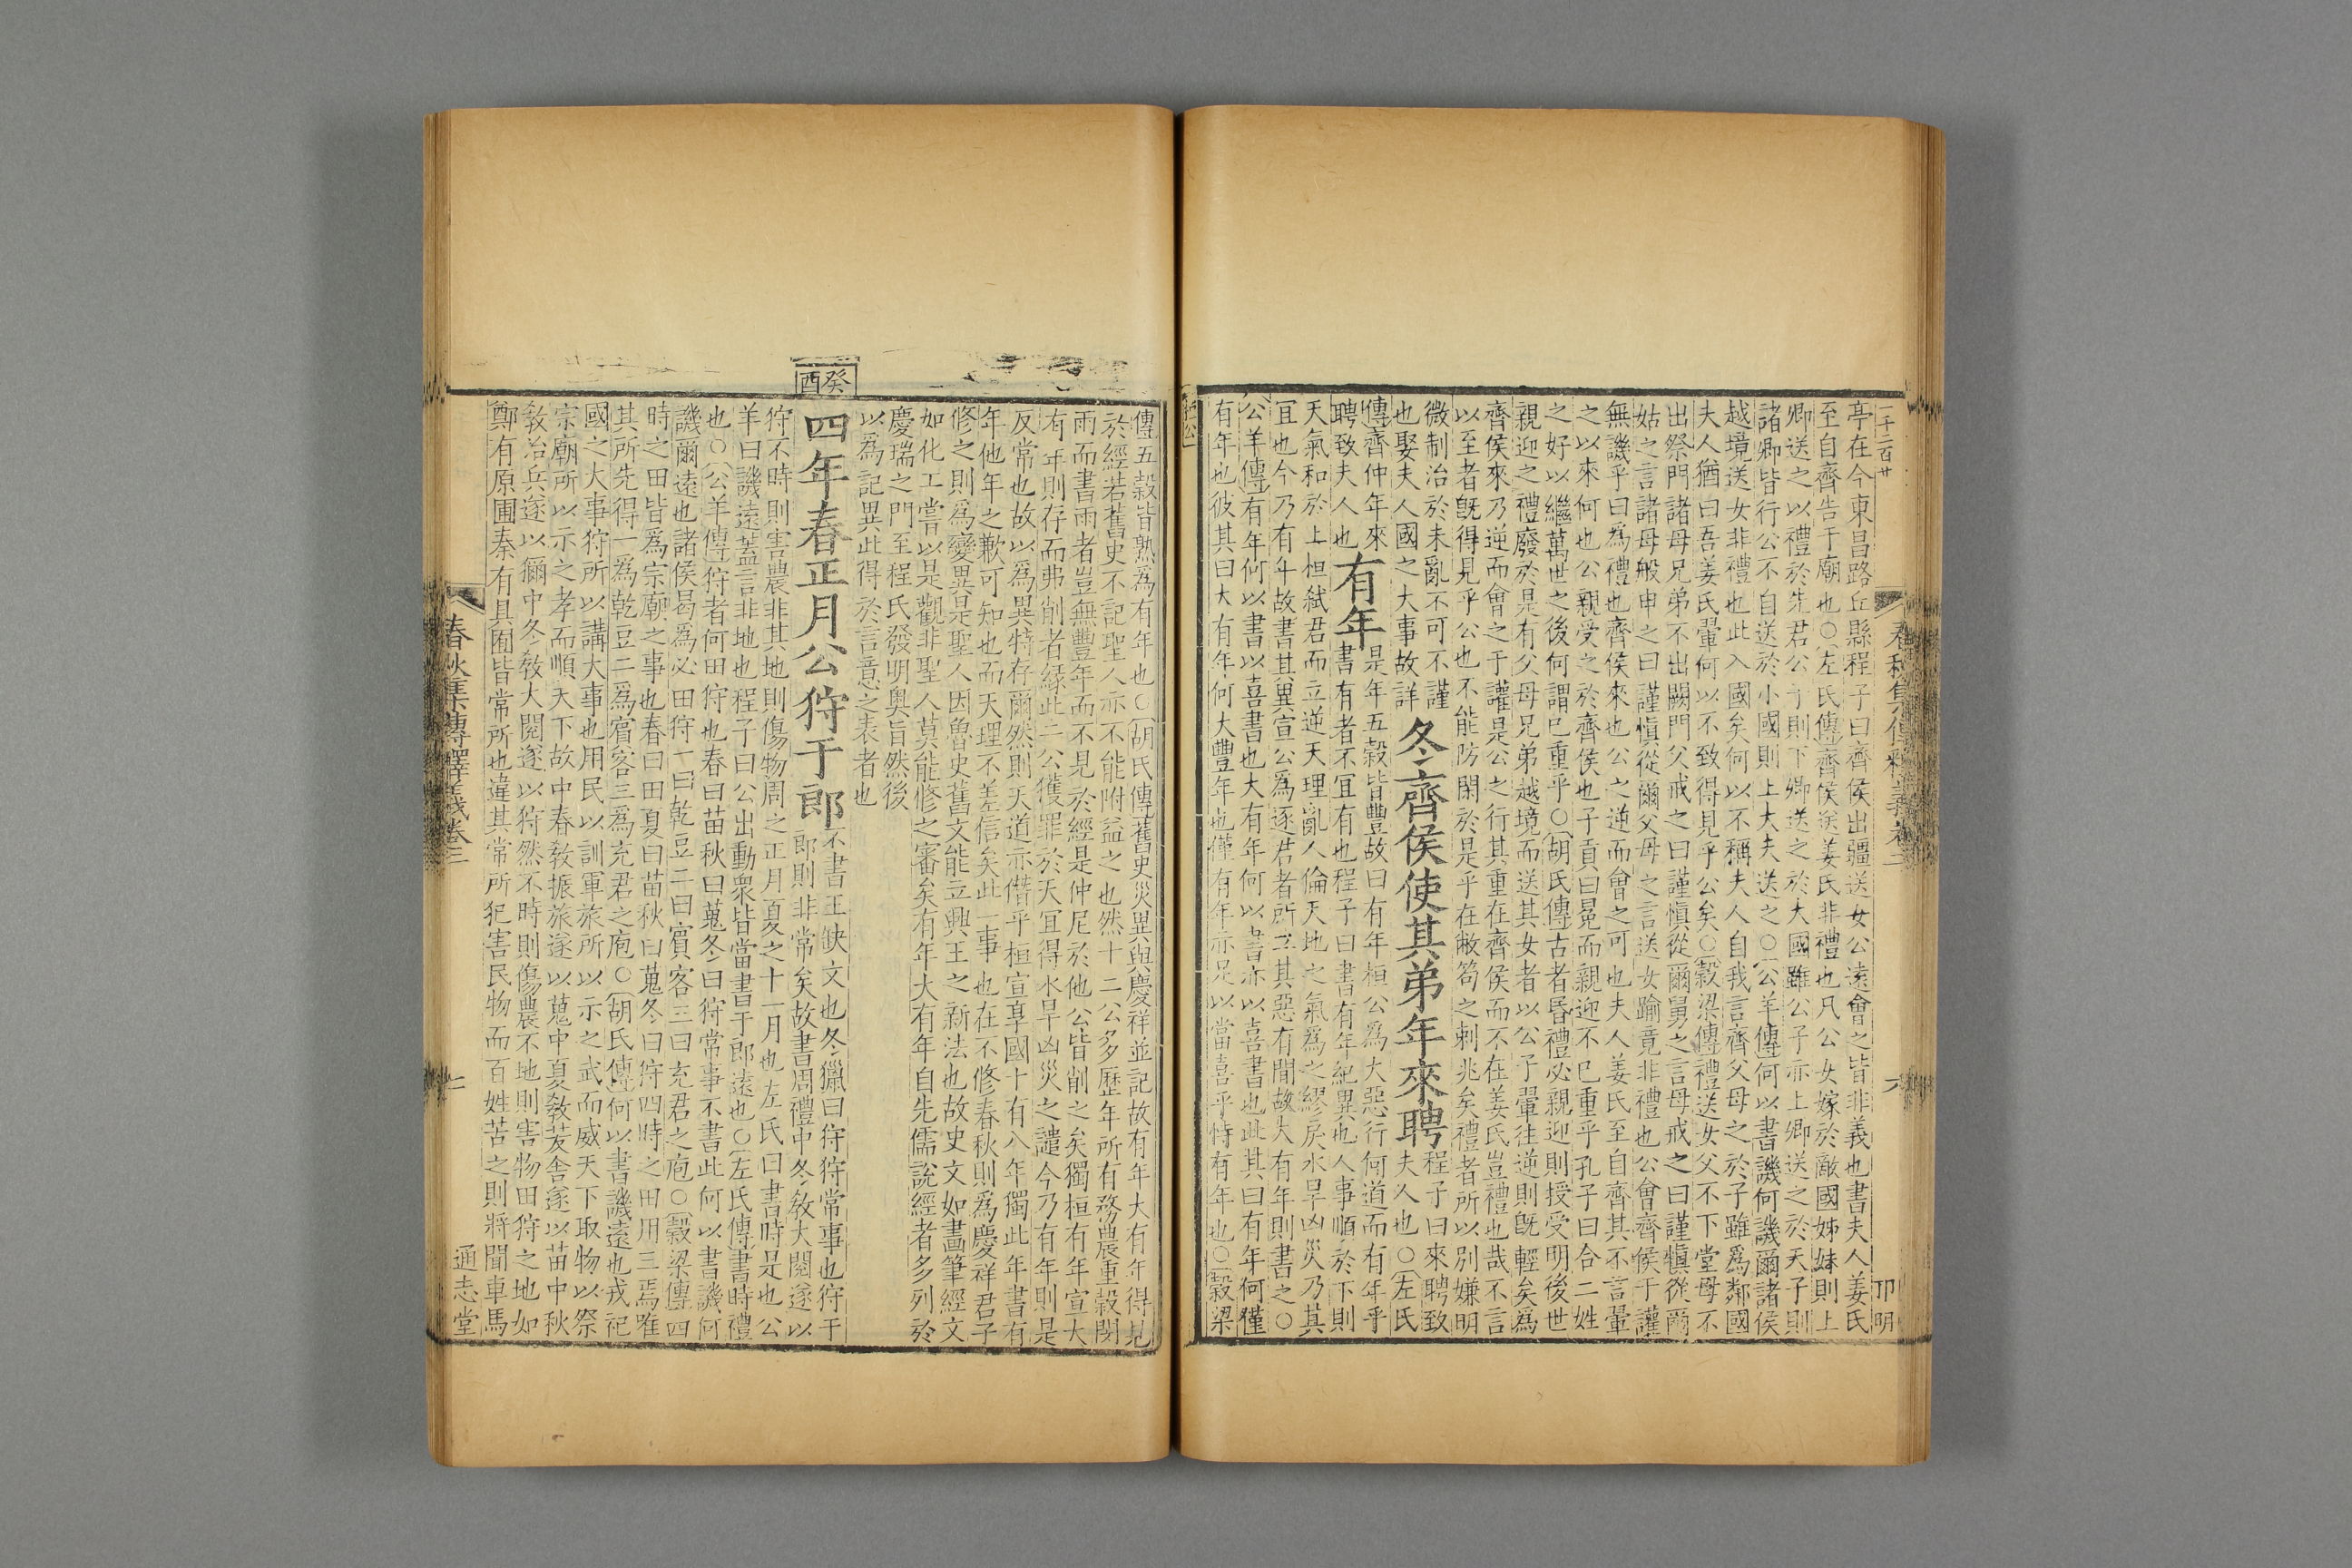 一千二百廿
亭在今東昌路丘縣程子曰齊侯出疆送女公遠會之皆非義也書夫人姜氏
至自齊告于廟也○左氏傳齊侯送姜氏非禮也凡公女嫁於敵國姊妹則上
卿送之以禮於先君公子則下卿送之於大國雖公子亦上卿送之於天子則
諸卿皆行公不自送於小國則上大夫送之○公羊傳何以書譏何譏爾諸侯
越境送女非禮也此入國矣何以不稱夫人自我言齊父母之於子雖爲鄰國
夫人猶曰吾姜氏翬何以不致得見乎公矣○穀梁傳禮送女父不下堂母不
出祭門諸母兄弟不出闕門父戒之曰謹慎從爾舅之言母戒之曰謹慎從爾
姑之言諸母般申之曰謹慎從爾父母之言送女踰竟非禮也公會齊侯于讙
無譏乎曰爲禮也齊侯來也公之逆而會之可也夫人姜氏至自齊其不言翬
之以來何也公親受之於齊侯也子貢曰冕而親迎不已重乎孔子曰合二姓
之好以繼萬世之後何謂已重乎○胡氏傳古者昏禮必親迎則授受明後世
親迎之禮廢於是有父母兄弟越境而送其女者以公子翬往逆則旣輕矣爲
齊侯來乃逆而會之于讙是公之行其重在齊侯而不在姜氏豈禮也哉不言
以至者旣得見乎公也不能防閑於是乎在敝笱之刺兆矣禮者所以別嫌明
微制治於未亂不可不謹 冬齊侯使其弟年來聘 程子曰來聘致
也娶夫人國之大事故詳 夫人也○左氏
傳齊仲年來 有年 是年五穀皆豐故曰有年桓公爲大惡行何道而有年乎
聘致夫人也 書有者不宜有也程子曰書有年紀異也人事順於下則
天氣和於上桓弑君而立逆天理亂人倫天地之氣爲之繆戾水旱凶災乃其
宜也今乃有年故書其異宣公爲逐君者所立其惡有閒故大有年則書之○
公羊傳有年何以書以喜書也大有年何以書亦以喜書也此其曰有年何僅
有年也彼其曰大有年何大豐年也僅有年亦足以當喜乎恃有年也○穀梁
桓公
春秋集傳釋義卷三
六
卭明
傳五穀皆熟爲有年也○胡氏傳舊史災異與慶祥並記故有年大有年得見
於經若舊史不記聖人亦不能附益之也然十二公多歷年所有務農重穀閔
雨而書雨者豈無豐年而不見於經是仲尼於他公皆削之矣獨桓有年宣大
有年則存而弗削者緣此二公獲罪於天宜得水旱凶災之譴今乃有年則是
反常也故以爲異特存爾然則天道亦僭乎桓宣享國十有八年獨此年書有
年他年之歉可知也而天理不差信矣此一事也在不修春秋則爲慶祥君子
修之則爲變異是聖人因魯史舊文能立興王之新法也故史文如畫筆經文
如化工嘗以是觀非聖人莫能修之審矣有年大有年自先儒說經者多列於
慶瑞之門至程氏發明奧旨然後
以爲記異此得於言意之表者也
癸酉
四年春正月公狩于郎 不書王缺文也冬獵曰狩狩常事也狩于
郎則非常矣故書周禮中冬敎大閱遂以
狩不時則害農非其地則傷物周之正月夏之十一月也左氏曰書時是也公
羊曰譏遠蓋言非地也程子曰公出動衆皆當書于郎遠也○左氏傳書時禮
也○公羊傳狩者何田狩也春曰苗秋曰蒐冬曰狩常事不書此何以書譏何
譏爾遠也諸侯曷爲必田狩一曰乾豆二曰賓客三曰充君之庖○穀梁傳四
時之田皆爲宗廟之事也春曰田夏曰苗秋曰蒐冬曰狩四時之田用三焉唯
其所先得一爲乾豆二爲賓客三爲充君之庖○胡氏傳何以書譏遠也戎祀
國之大事狩所以講大事也用民以訓軍旅所以示之武而威天下取物以祭
宗廟所以示之孝而順天下故中春敎振旅遂以蒐中夏敎茇舍遂以苗中秋
敎治兵遂以獮中冬敎大閱遂以狩然不時則傷農不地則害物田狩之地如
鄭有原圃秦有具囿皆常所也違其常所犯害民物而百姓苦之則將聞車馬
春秋集傳釋義卷三
七
通志堂